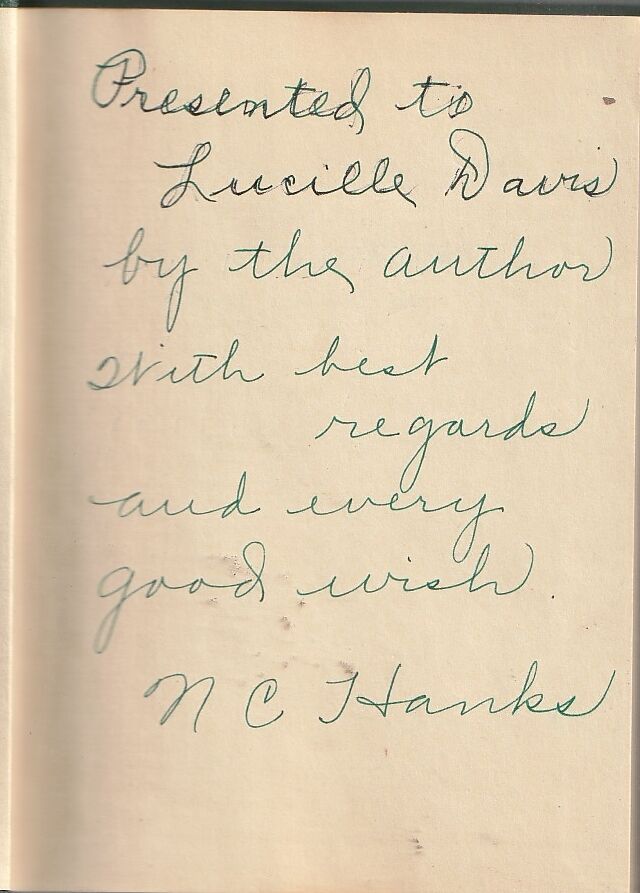 Presented to
Lucille Davis
by the author
With best
regards
and every
good wish.
N C Hanks